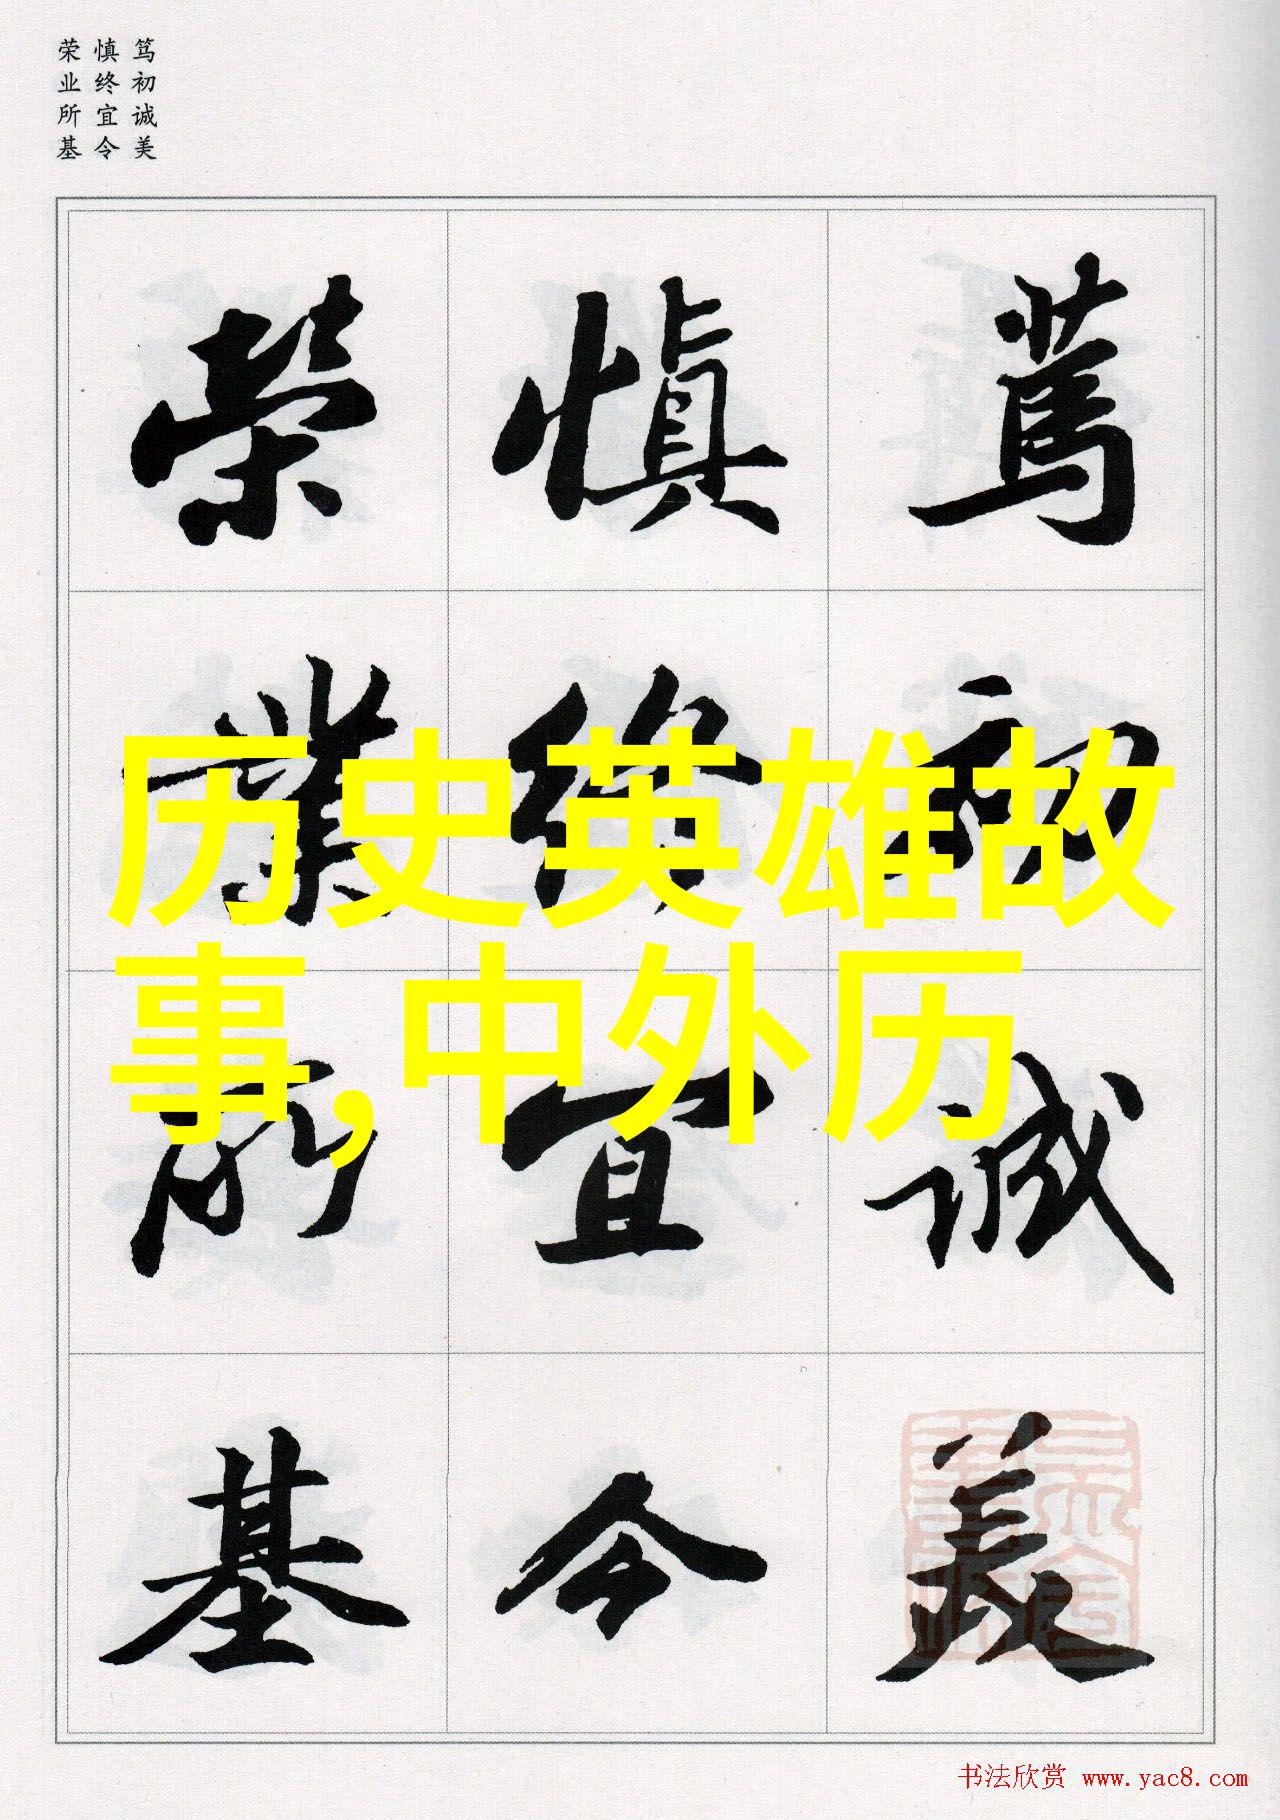 笃初诚美
慎终宜令
荣业所基
篤初誠美
慎終宜令
榮業所基
历史英雄故
事,中外历
书法欣赏 www.yac8.com